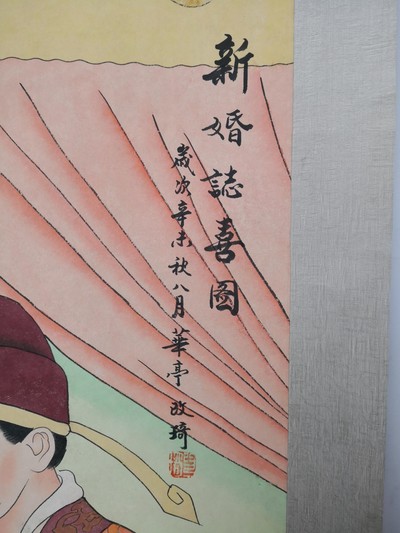 新婚誌喜圖
歲次辛未秋八月華亭改琦